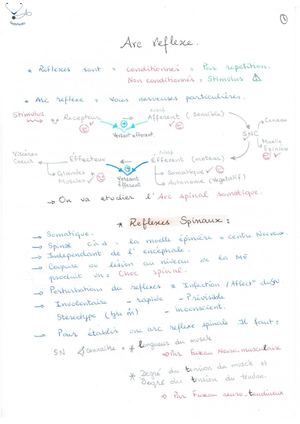 Arc réflexe.
* Réflexes sont = conditionnés = Par repetition.
Non conditionnés = Stimulus
* Arc reflexe = Voies nerveuses particulières.
Stimulus → Recepteur → Afferent (sensible)
Versant afferent
SNC
Cerveau
Moelle Epinière
Viscères
Coeur
Effecteur
Glandes
Muscles
Versant Efferent
Efferent (moteur)
Somatique
Autonome (Végétatif)
→ On va etudier l'Arc spinal somatique.
* Reflexes Spinaux :
→ Somatique.
→ Spinal c.à.d. la moelle épinière = centre Nerveux
→ Independant de l'encéphale.
→ ou lésion au niveau de la ME
produit un : Choc spinal.
→ Perturbations du reflexes = Infection / Affect° du SN
→ Involontaire - rapide - Prévisible
Stereotypé - inconscient.
→ Pour établir une arc reflexe spinale Il faut :
SN connaitre = * longueurs du muscle
→ Par Fuseau Neuro-musculaire
* Degré du tension du muscle et
Degré du tension du tendon.
→ Par Fuseau neuro-tendineux